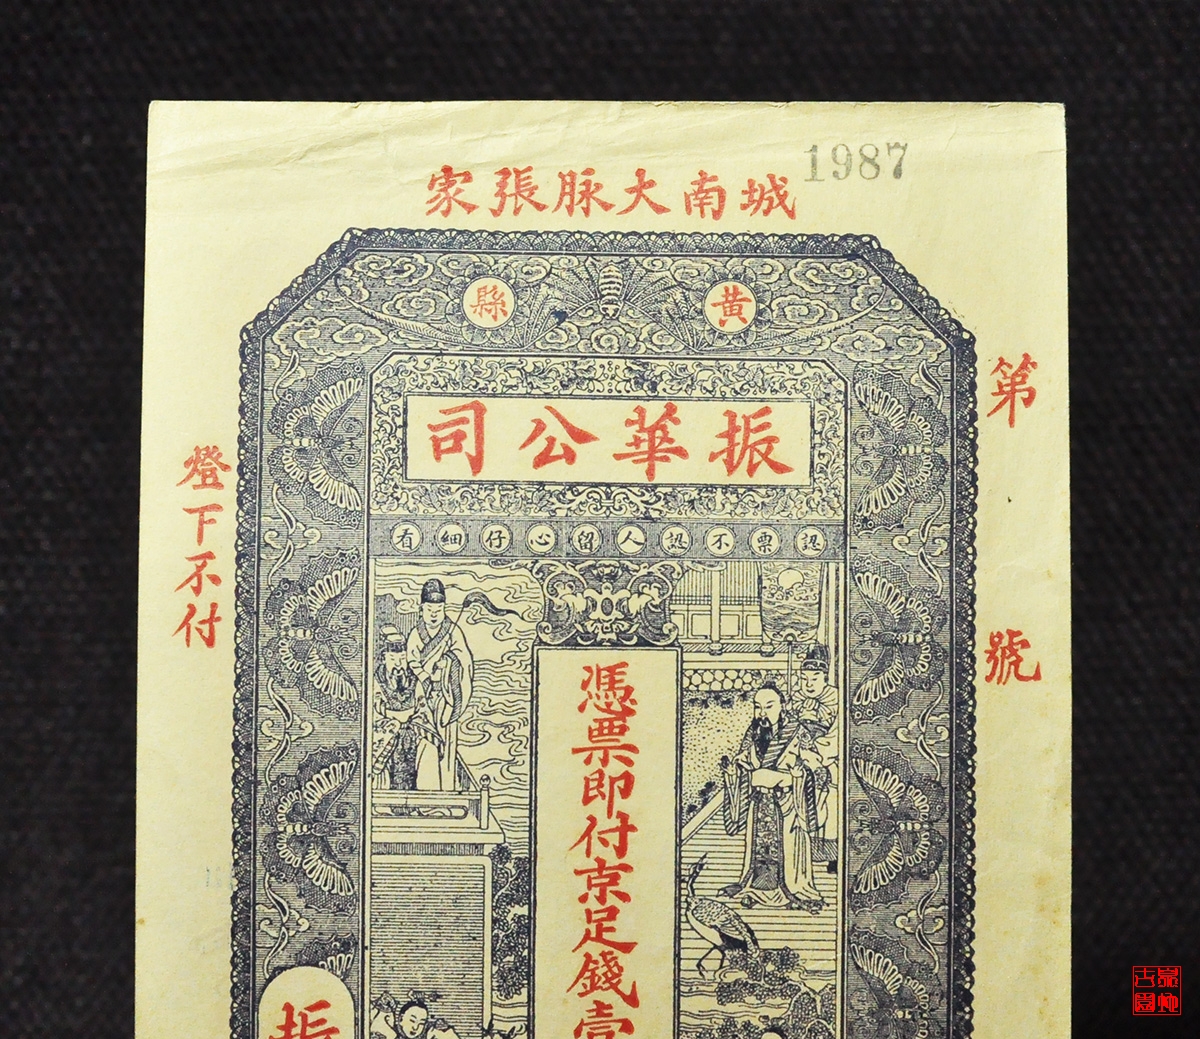 1987
城南大脉張家
黄縣
振華公司
認票不認人留心仔細看
第號
憑票即付京足錢壹
燈下不付
振